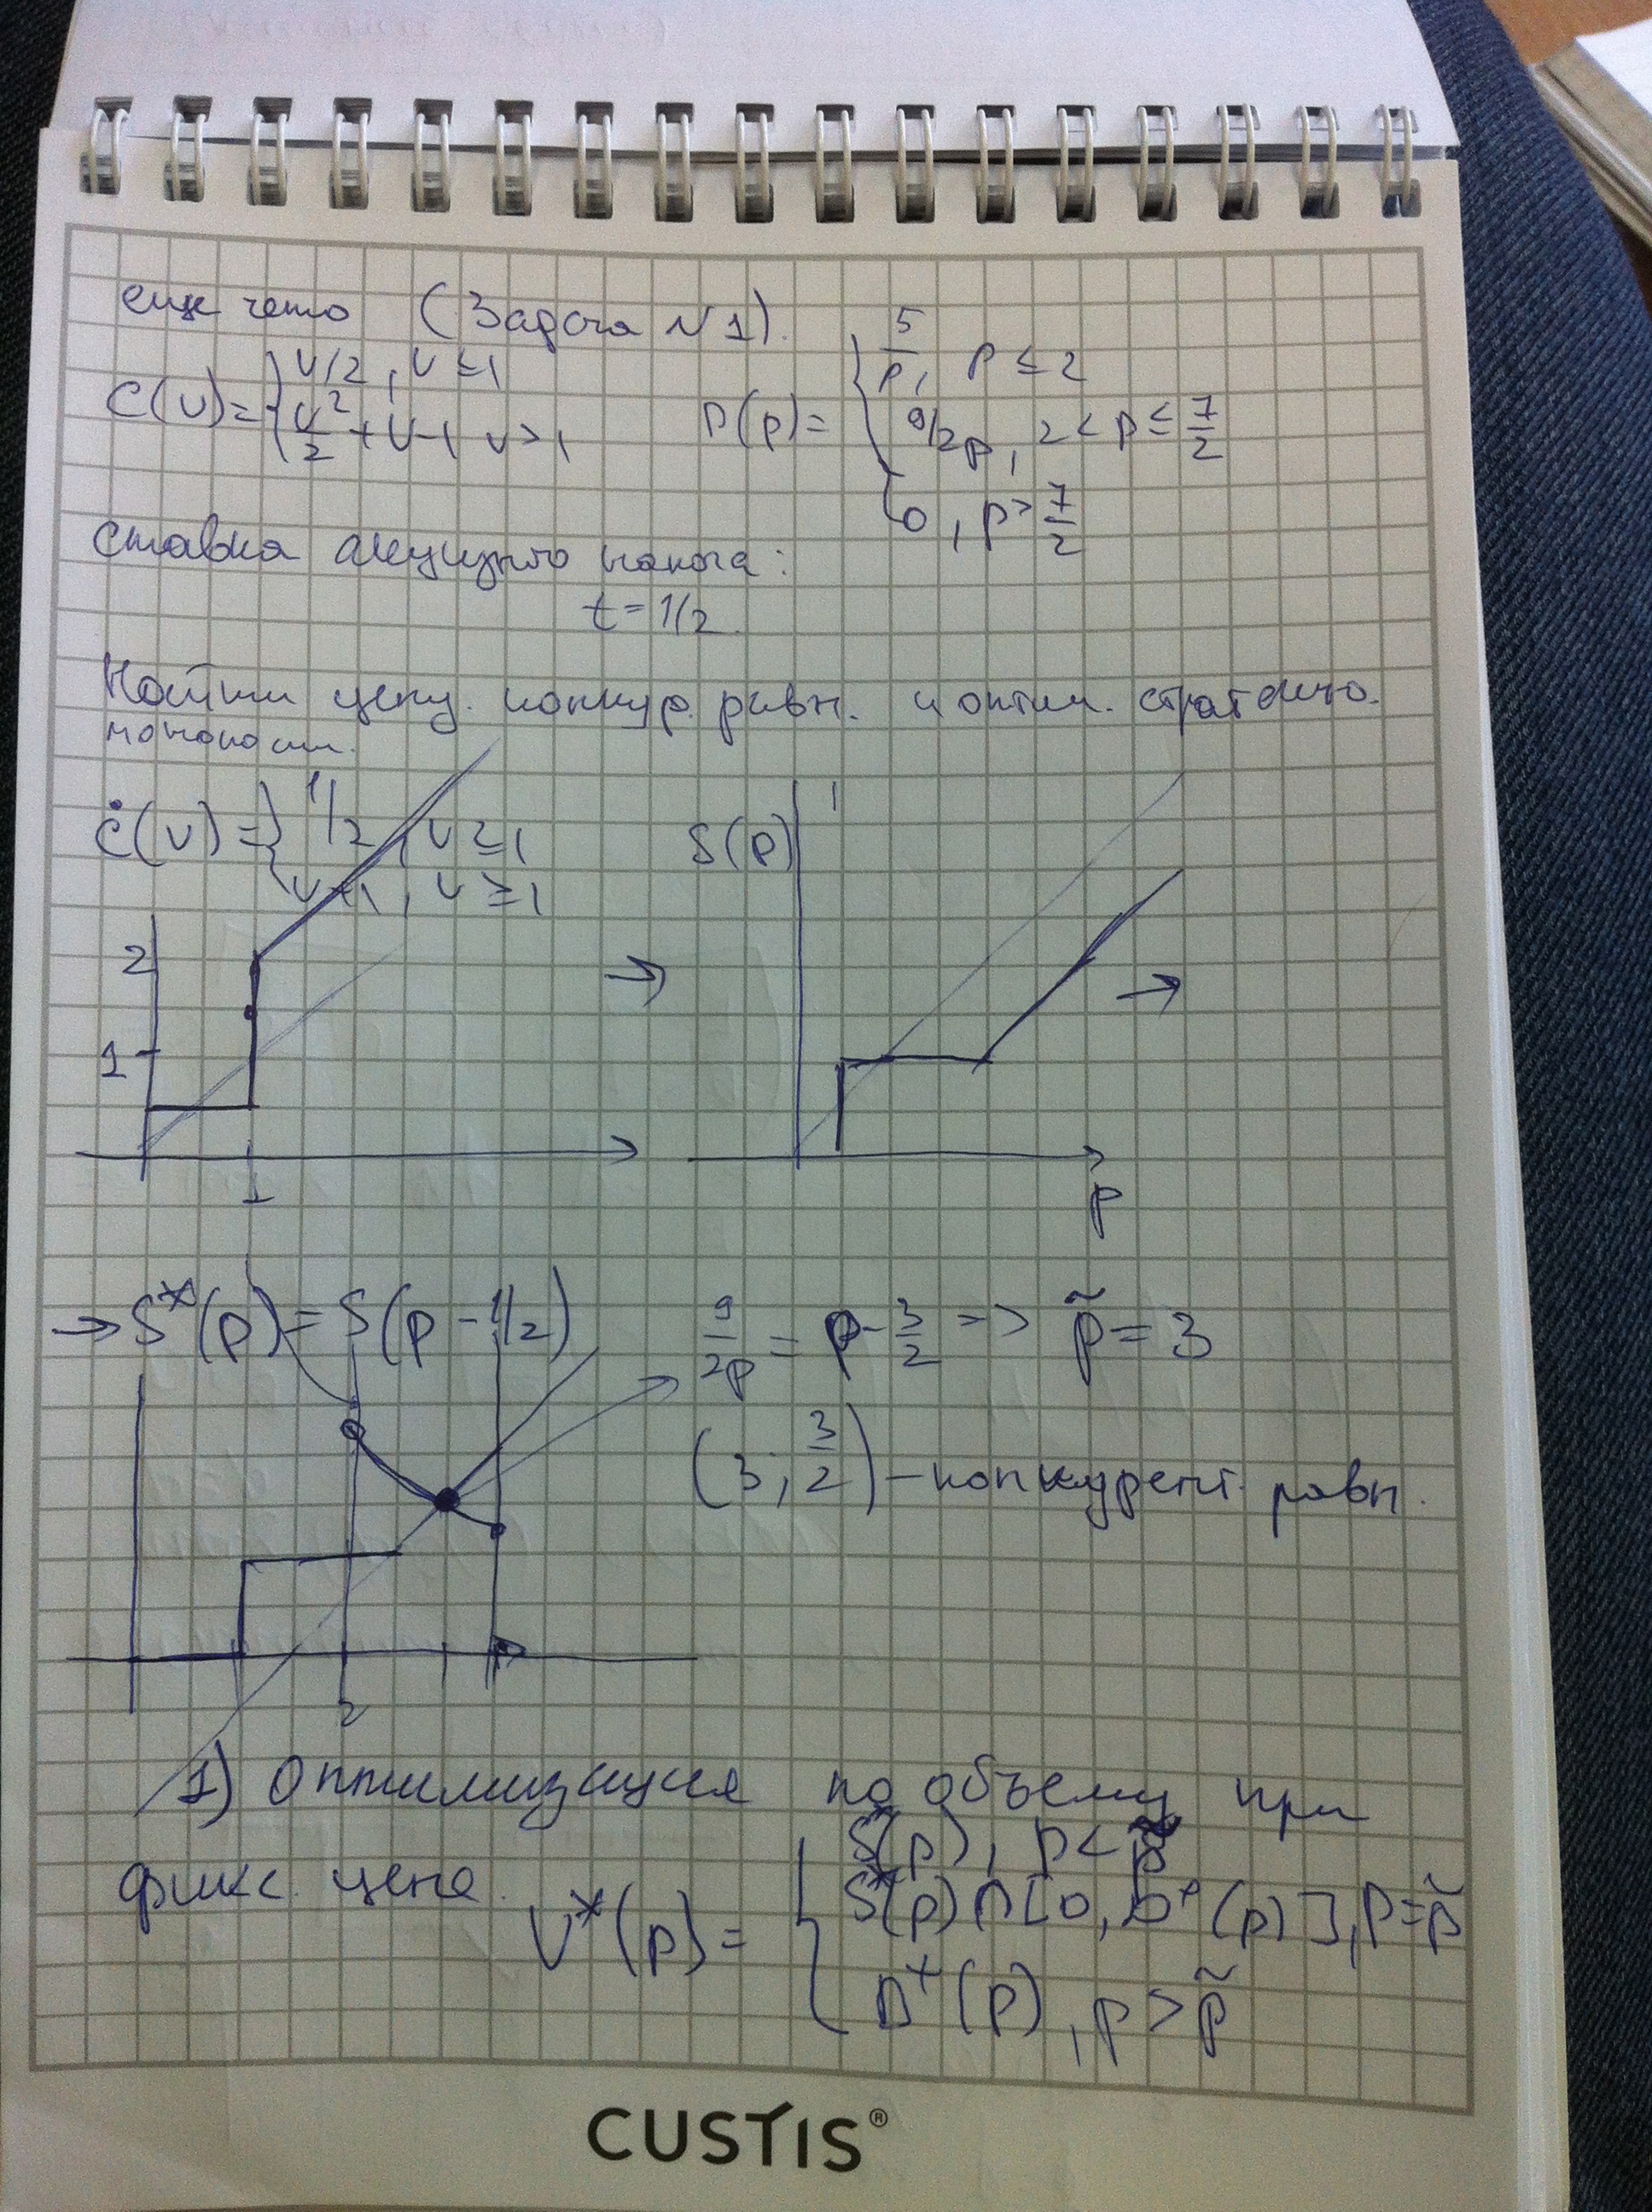 еще чето (Задача N 1).
C(v) = { v/2, v ≤ 1
v²/2 + v - 1, v > 1
D(p) = { 5/p, p ≤ 2
9/2p, 2 < p ≤ 7/2
0, p > 7/2
ставка акцизного налога:
t = 1/2.
Найти цену. конкур. равн. и оптим. страт
монополии.
Ċ(v) = { 1/2, v ≥ 1
v+1, v ≥ 1
S(p)
2
1
1
p
→ S*(p) = S(p - 1/2)
9/2p = p - 3/2 => p̃ = 3
(3; 3/2) - конкурент. равн.
2
1) Оптимизация по объему при
фикс. цене.
V*(p) = { S*(p), p < p̃
S*(p) ∩ [0, D⁺(p)], p = p̃
D⁺(p), p > p̃
CUSTIS®